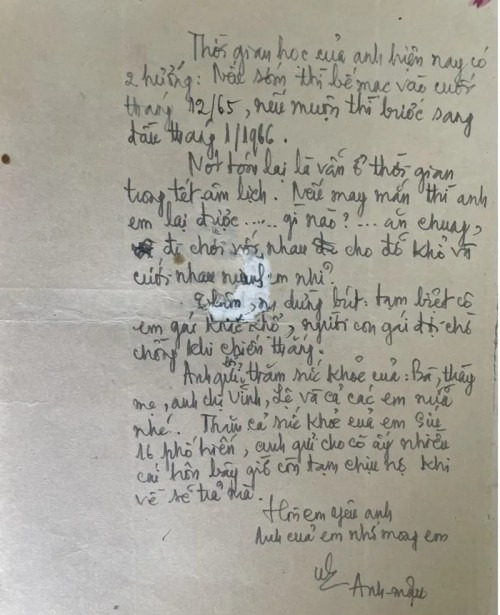 Thời gian học của anh hiện nay có
2 hướng: Nếu sớm thì bế mạc vào cuối
tháng 12/65, nếu muộn thì bước sang
đầu tháng 1/1966.
Nói tóm lại là vấn ở thời gian
trong tết âm lịch. Nếu may mắn thì anh
em lại được ...... gì nào? ... ăn chung,
đi chơi với nhau cho đỡ khổ và
cưới nhau em nhỉ?
dừng bút: tạm biệt cô
em gái khổ, người con gái đợi chờ
chồng khi chiến thắng.
Anh gửi thăm sức khoẻ của: Bà, thầy
mẹ, anh chị Vĩnh, Lệ và cả các em nữa
nhé. Thăm cả sức khoẻ của em
16 phố hiến, anh gửi cho cô ấy nhiều
cái hôn bây giờ còn tạm chịu họ khi
về sẽ trả mà.
Hôn em yêu anh
Anh của em nhớ mong em
Anh-